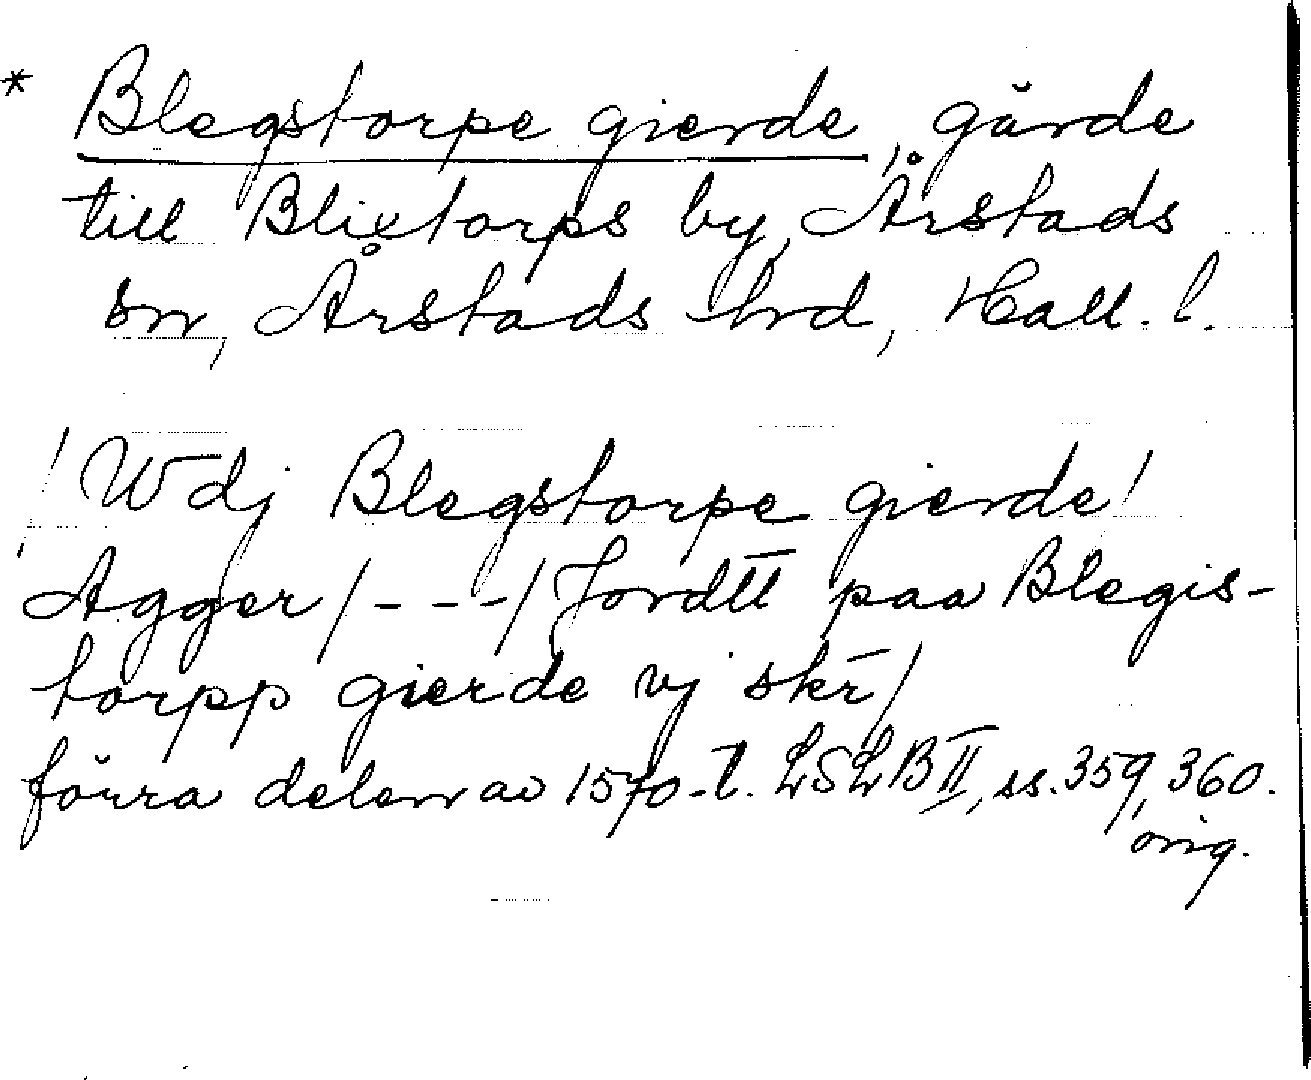 * Blegstorpe gierde, gärde
till Blixtorps by, Årstads
sn, Årstads hrd, Hall. l.
/Wdj Blegstorpe gierde/
Agger /---/ Jordtt paa Blegis-
torpp gierde vj skr̄/
förra delen av 1570-t. LSLB II, ss. 359, 360.
orig.